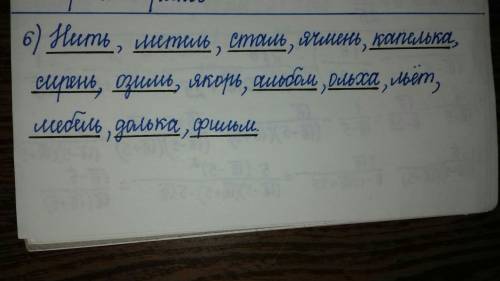 6) Нить, метель, сталь, ячмень, капелька,
сирень, озимь, якорь, альбом, ольха, льёт,
мебель, долька, фильм.